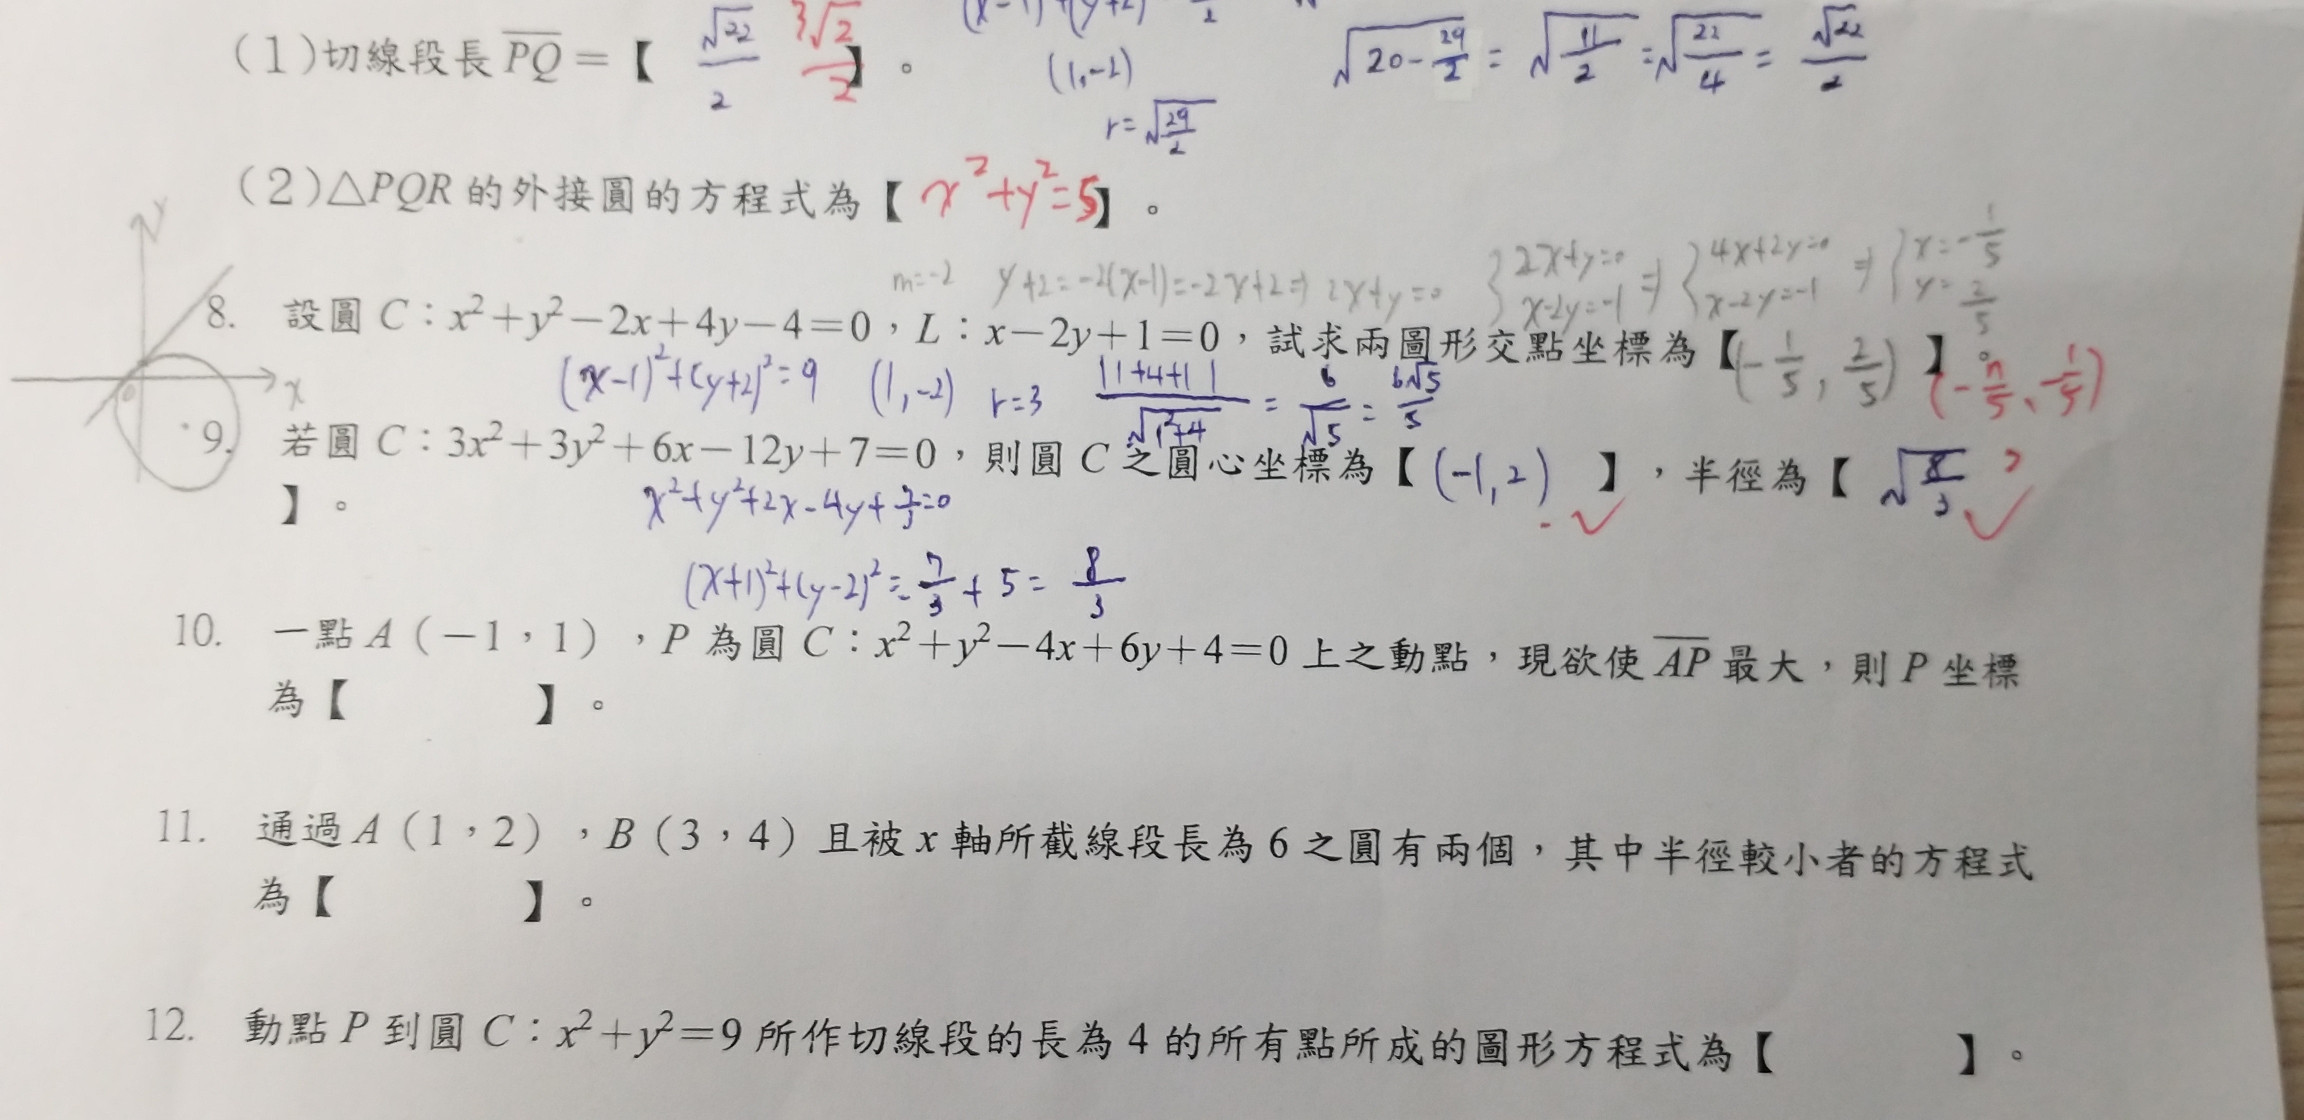 (x-1)²+(y+2)
(1)切線段長 PQ＝【 √22/2 3√2/2 】。
(1,-2)
r=√(29/2)
√(20-29/2) = √(11/2) = √(22/4) = √22/2
(2)△PQR 的外接圓的方程式為【 x²+y²=5 】。
y
x
m=-2 y+2=-2(x-1)=-2x+2⇒ 2x+y=0 {2x+y=0 x-2y=-1 ⇒ {4x+2y=0 x-2y=-1 ⇒ {x=-1/5 y=2/5
8. 設圓 C：x²＋y²－2x＋4y－4＝0，L：x－2y＋1＝0，試求兩圖形交點坐標為【(-1/5, 2/5) 】。
(x-1)²+(y+2)²=9 (1,-2) r=3 |1+4+1|/√(1²+4) = 6/√5 = 6√5/5
9. 若圓 C：3x²＋3y²＋6x－12y＋7＝0，則圓 C 之圓心坐標為【 (-1,2) 】，半徑為【 √(8/3)
】。
x²+y²+2x-4y+7/3=0
(x+1)²+(y-2)²=-7/3+5=8/3
10. 一點 A（－1，1），P 為圓 C：x²＋y²－4x＋6y＋4＝0 上之動點，現欲使 AP 最大，則 P 坐標
為【 】。
11. 通過 A（1，2），B（3，4）且被 x 軸所截線段長為 6 之圓有兩個，其中半徑較小者的方程式
為【 】。
12. 動點 P 到圓 C：x²＋y²＝9 所作切線段的長為 4 的所有點所成的圖形方程式為【 】。